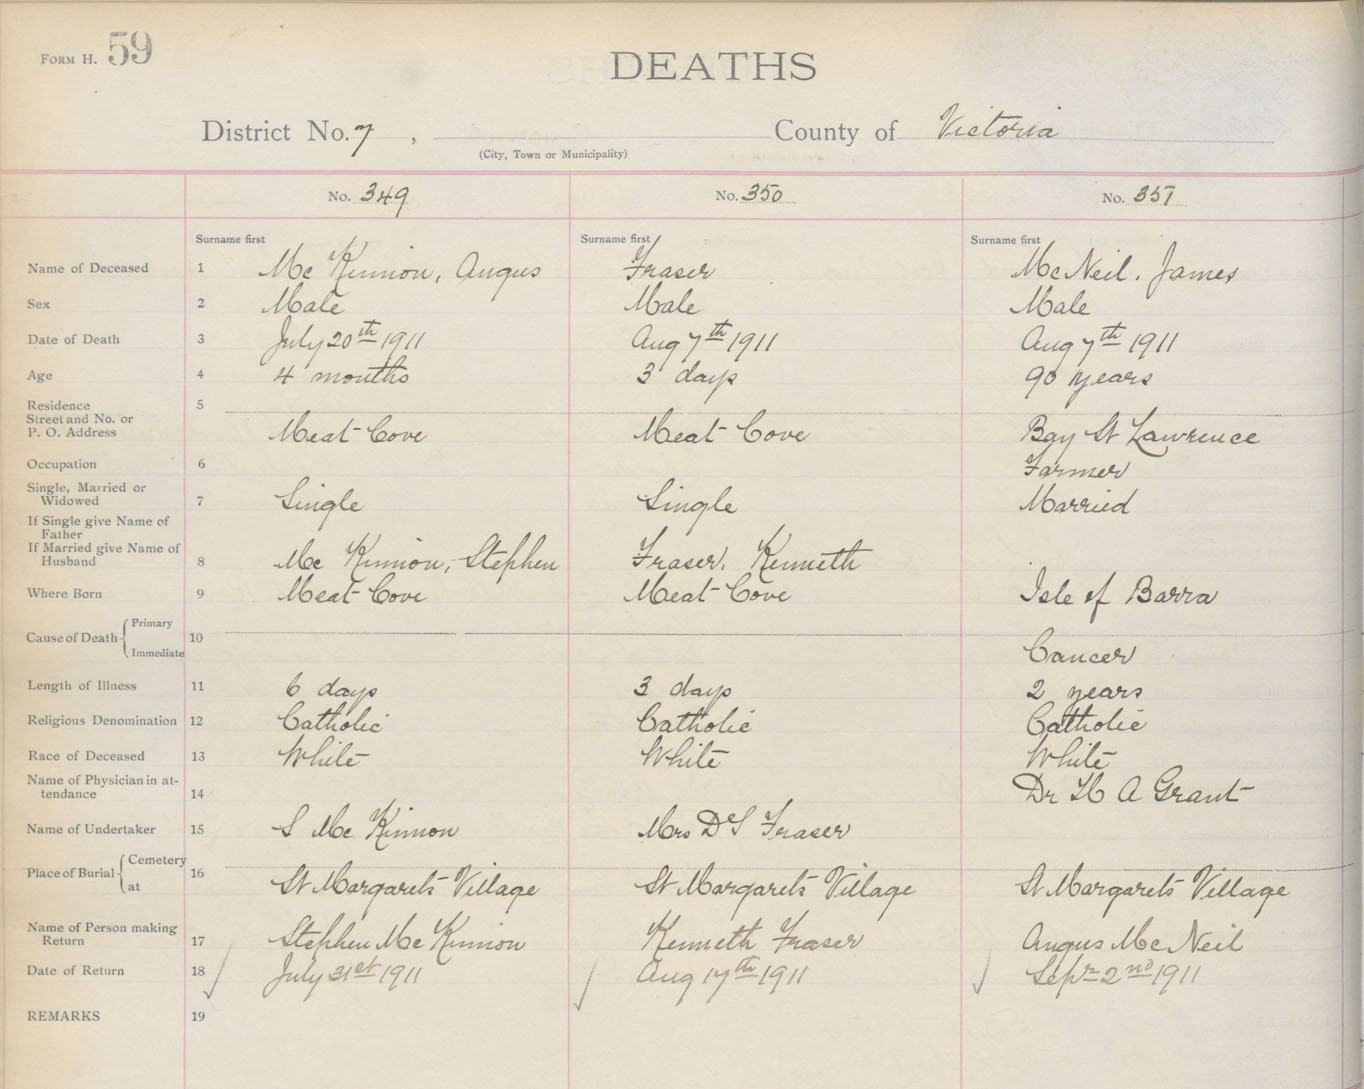 FORM H. 59
DEATHS
District No. 7, County of Victoria
(City, Town or Municipality)
No. 349 No. 350 No. 351
Surname first Surname first Surname first
Name of Deceased 1 Mc Kinnon, Angus Fraser McNeil. James
Sex 2 Male Male Male
Date of Death 3 July 20th 1911 Aug 7th 1911 Aug 7th 1911
Age 4 4 months 3 days 90 years
Residence 5
Street and No. or
P. O. Address Meat Cove Meat Cove Bay St Lawrence
Occupation 6 Farmer
Single, Married or
Widowed 7 Single Single Married
If Single give Name of
Father
If Married give Name of
Husband 8 Mc Kinnon, Stephen Fraser. Kenneth
Where Born 9 Meat Cove Meat Cove Isle of Barra
Cause of Death Primary
10
Immediate Cancer
Length of Illness 11 6 days 3 days 2 years
Religious Denomination 12 Catholic Catholic Catholic
Race of Deceased 13 White White White
Name of Physician in at-
tendance 14 Dr H A Grant
Name of Undertaker 15 S Mc Kinnon Mrs D S Fraser
Place of Burial Cemetery
16
at St Margarets Village St Margarets Village St Margarets Village
Name of Person making
Return 17 Stephen Mc Kinnon Kenneth Fraser Angus McNeil
Date of Return 18 July 31st 1911 Aug 17th 1911 Sepr 2nd 1911
REMARKS 19